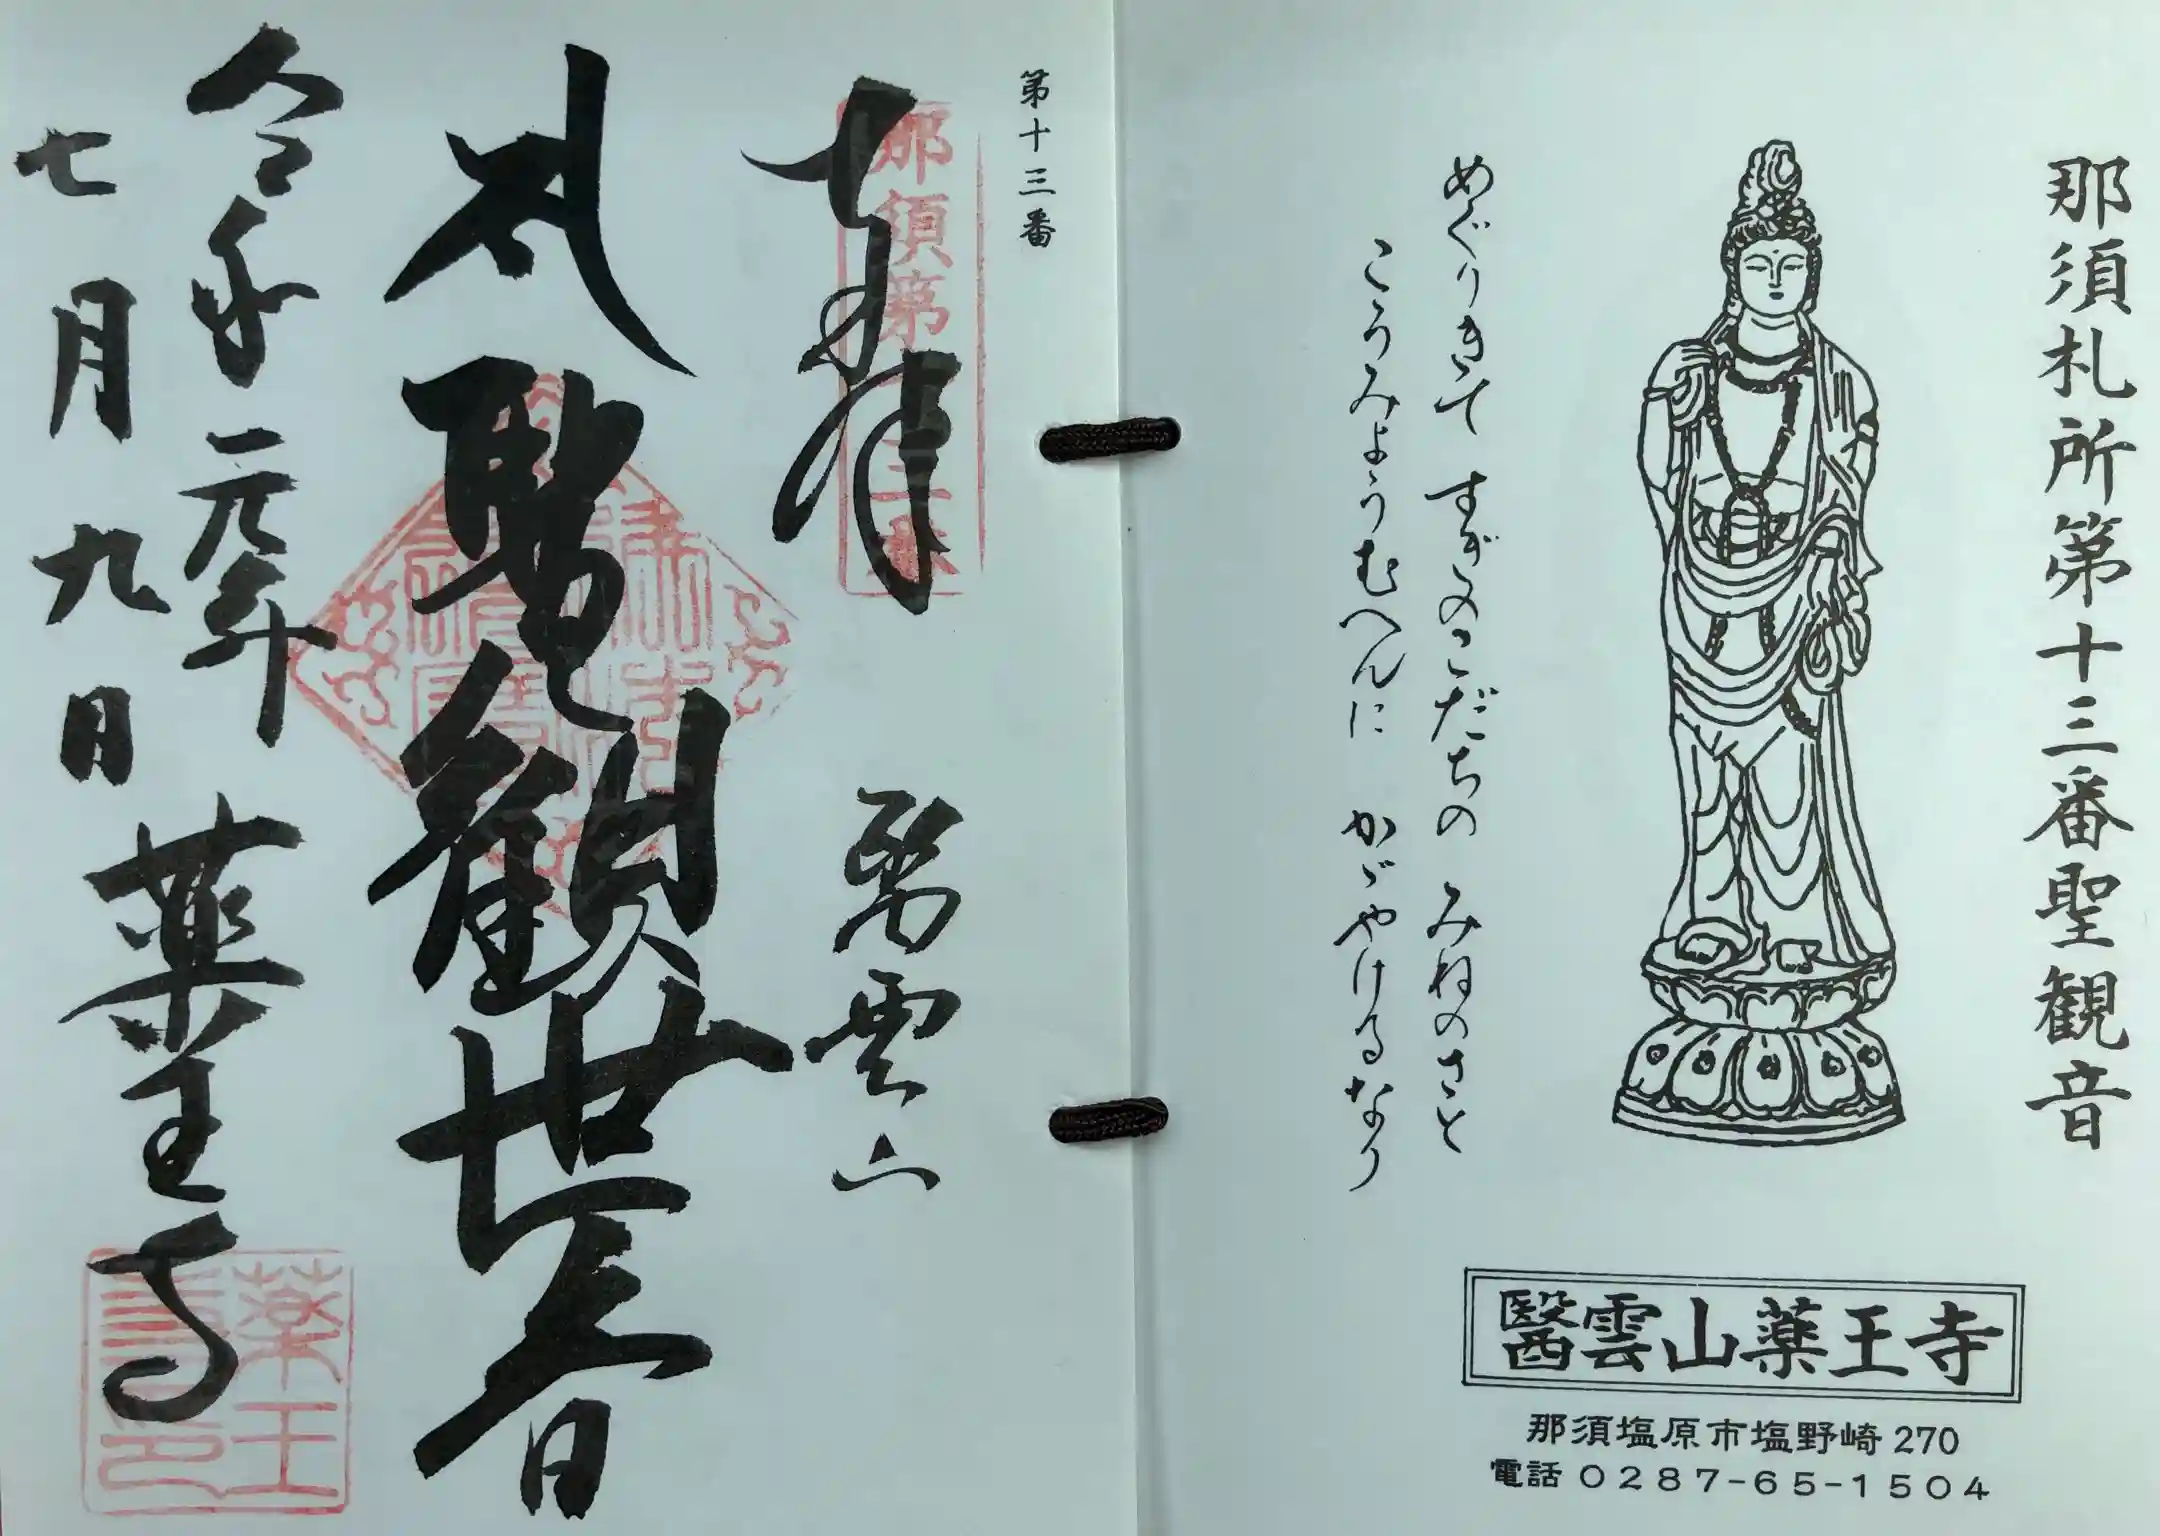 那須札所第十三番聖観音
めぐりきて すぎのこだちの みねのさと
こうみょうむへんに かゞやけるなり
醫雲山薬王寺
那須塩原市塩野崎270
電話 0287-65-1504
第十三番
奉拝
那須第十三番
醫雲山
大聖観世音
令和元年
七月九日
薬王寺
薬王寺印